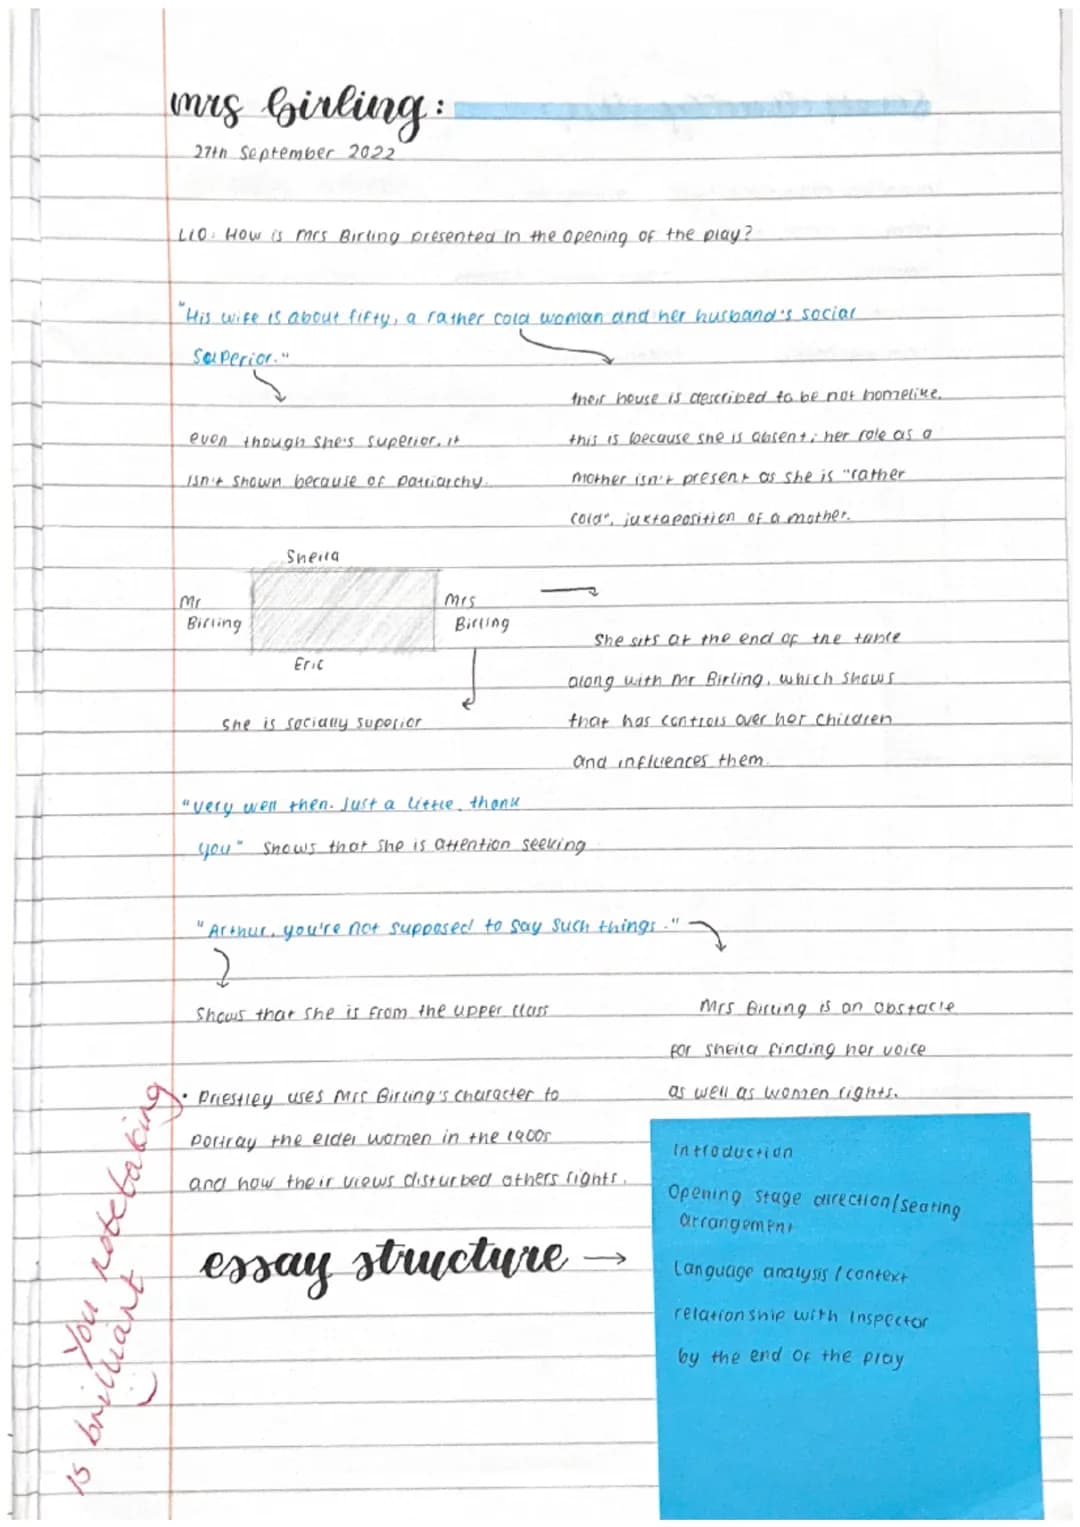 mrs birling:
27th September 2022
LIO: How is Mrs Birling presented in the opening of the play?
"His wife is about fifty, a rather cold woman and her husband's social
superior."
even though she's superior, it
isn't shown because of patriarchy.
their house is described to be not homelike.
this is because she is absent; her role as a
mother isn't present as she is "rather
cold", juxtaposition of a mother.
Sheila
Mr
Birling
Mrs
Birling
Eric
she is socially superior
She sits at the end of the table
along with Mr Birling, which shows
that has controls over her children
and influences them.
"very well then. Just a little, thank
you" shows that she is attention seeking
"Arthur, you're not supposed to say such things."
Shows that she is from the upper class
Mrs Birling is an obstacle
for Sheila finding her voice
as well as women rights.
• Priestley uses Mrs Birling's character to
portray the elder women in the 1900s
and how their views disturbed others rights.
essay structure →
Introduction
Opening stage direction/seating
arrangement
Language analysis / context
relationship with Inspector
by the end of the play
You notetaking
is brilliant